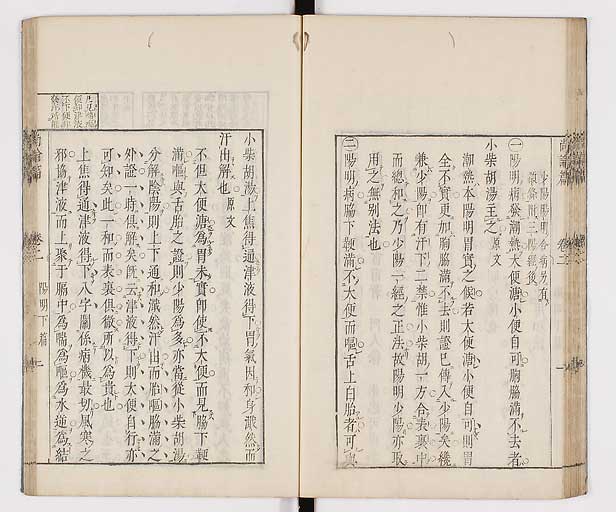 尚論篇
卷二
一
少陽陽明合病另有
二條附三陽經後
㊀陽明病發潮熱大便溏小便自可胸脇滿不去者
小柴胡湯主之原文
潮熱本陽明胃實之候若大便溏小便自可則胃
全不實更加胸脇滿不去則證已傳入少陽矣纔
兼少陽即有汗下二禁惟小柴胡一方合表裏中
而總和之乃少陽一經之正法故陽明少陽亦取
用之無別法也
㊁陽明病脇下鞕滿不大便而嘔舌上白胎者可與
小柴胡湯上焦得通津液得下胃氣因和身濈然而
汗出解也原文
不但大便溏為胃未實即使不大便而見脇下鞕
滿嘔與舌胎之證則少陽為多亦當從小柴胡湯
分解陰陽則上下通和濈然汗出而胎嘔脇滿之
外證一時俱解矣既云津液得下則大便自行亦
可知矣此一和而表裏俱徹所以為貴也
上焦得通津液得下八字關係病機最切風寒之
邪協津液而上聚于膈中為喘為嘔為水逆為結
尚論篇
卷二
陽明下篇
二